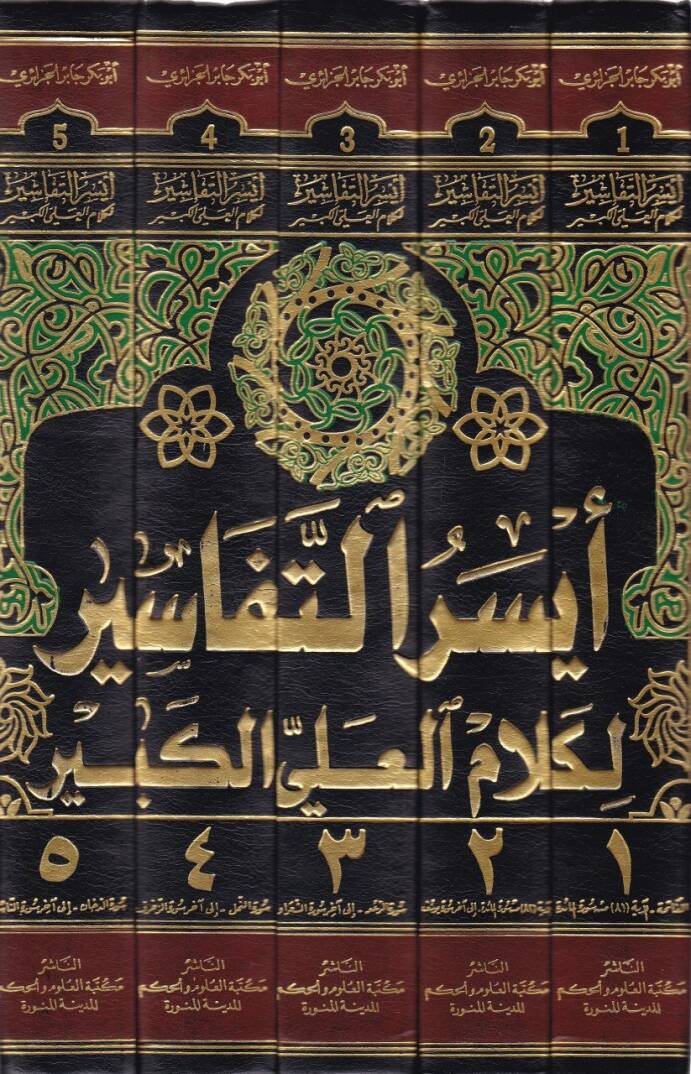 أبو بكر جابر الجزائري
أبو بكر جابر الجزائري
أبو بكر جابر الجزائري
أبو بكر جابر الجزائري
أبو بكر جابر الجزائري
1
2
3
4
5
أيسر التفاسير
لكلام العلي الكبير
أيسر التفاسير
لكلام العلي الكبير
أيسر التفاسير
لكلام العلي الكبير
أيسر التفاسير
لكلام العلي الكبير
أيسر التفاسير
لكلام العلي الكبير
أَيْسَرُ ٱلتَّفَاسِيرِ
لِكَلَامِ ٱلْعَلِيِّ الكَبِيرِ
١
٢
٣
٤
٥
الفاتحة - الآية (٨١) من سورة المائدة
من سورة المائدة - إلى آخر سورة يوسف
سورة الرعد - إلى آخر سورة الشعراء
سورة النمل - إلى آخر سورة الزخرف
سورة الدخان - إلى آخر سورة الناس
الناشر
مكتبة العلوم والحكم
المدينة المنورة
الناشر
مكتبة العلوم والحكم
المدينة المنورة
الناشر
مكتبة العلوم والحكم
المدينة المنورة
الناشر
مكتبة العلوم والحكم
المدينة المنورة
الناشر
مكتبة العلوم والحكم
المدينة المنورة